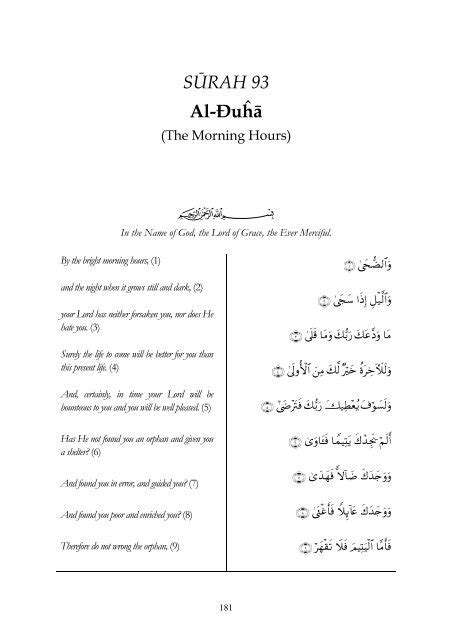 SŪRAH 93
Al-Đuĥā
(The Morning Hours)
﷽
In the Name of God, the Lord of Grace, the Ever Merciful.
By the bright morning hours, (1)
and the night when it grows still and dark, (2)
your Lord has neither forsaken you, nor does He
hate you. (3)
Surely the life to come will be better for you than
this present life. (4)
And, certainly, in time your Lord will be
bounteous to you and you will be well pleased. (5)
Has He not found you an orphan and given you
a shelter? (6)
And found you in error, and guided you? (7)
And found you poor and enriched you? (8)
Therefore do not wrong the orphan, (9)
وَٱلضُّحَىٰ ۝١
وَٱلَّيْلِ إِذَا سَجَىٰ ۝٢
مَا وَدَّعَكَ رَبُّكَ وَمَا قَلَىٰ ۝٣
وَلَلْءَاخِرَةُ خَيْرٌ لَّكَ مِنَ ٱلْأُولَىٰ ۝٤
وَلَسَوْفَ يُعْطِيكَ رَبُّكَ فَتَرْضَىٰٓ ۝٥
أَلَمْ يَجِدْكَ يَتِيمًا فَـَٔاوَىٰ ۝٦
وَوَجَدَكَ ضَآلًّا فَهَدَىٰ ۝٧
وَوَجَدَكَ عَآئِلًا فَأَغْنَىٰ ۝٨
فَأَمَّا ٱلْيَتِيمَ فَلَا تَقْهَرْ ۝٩
181